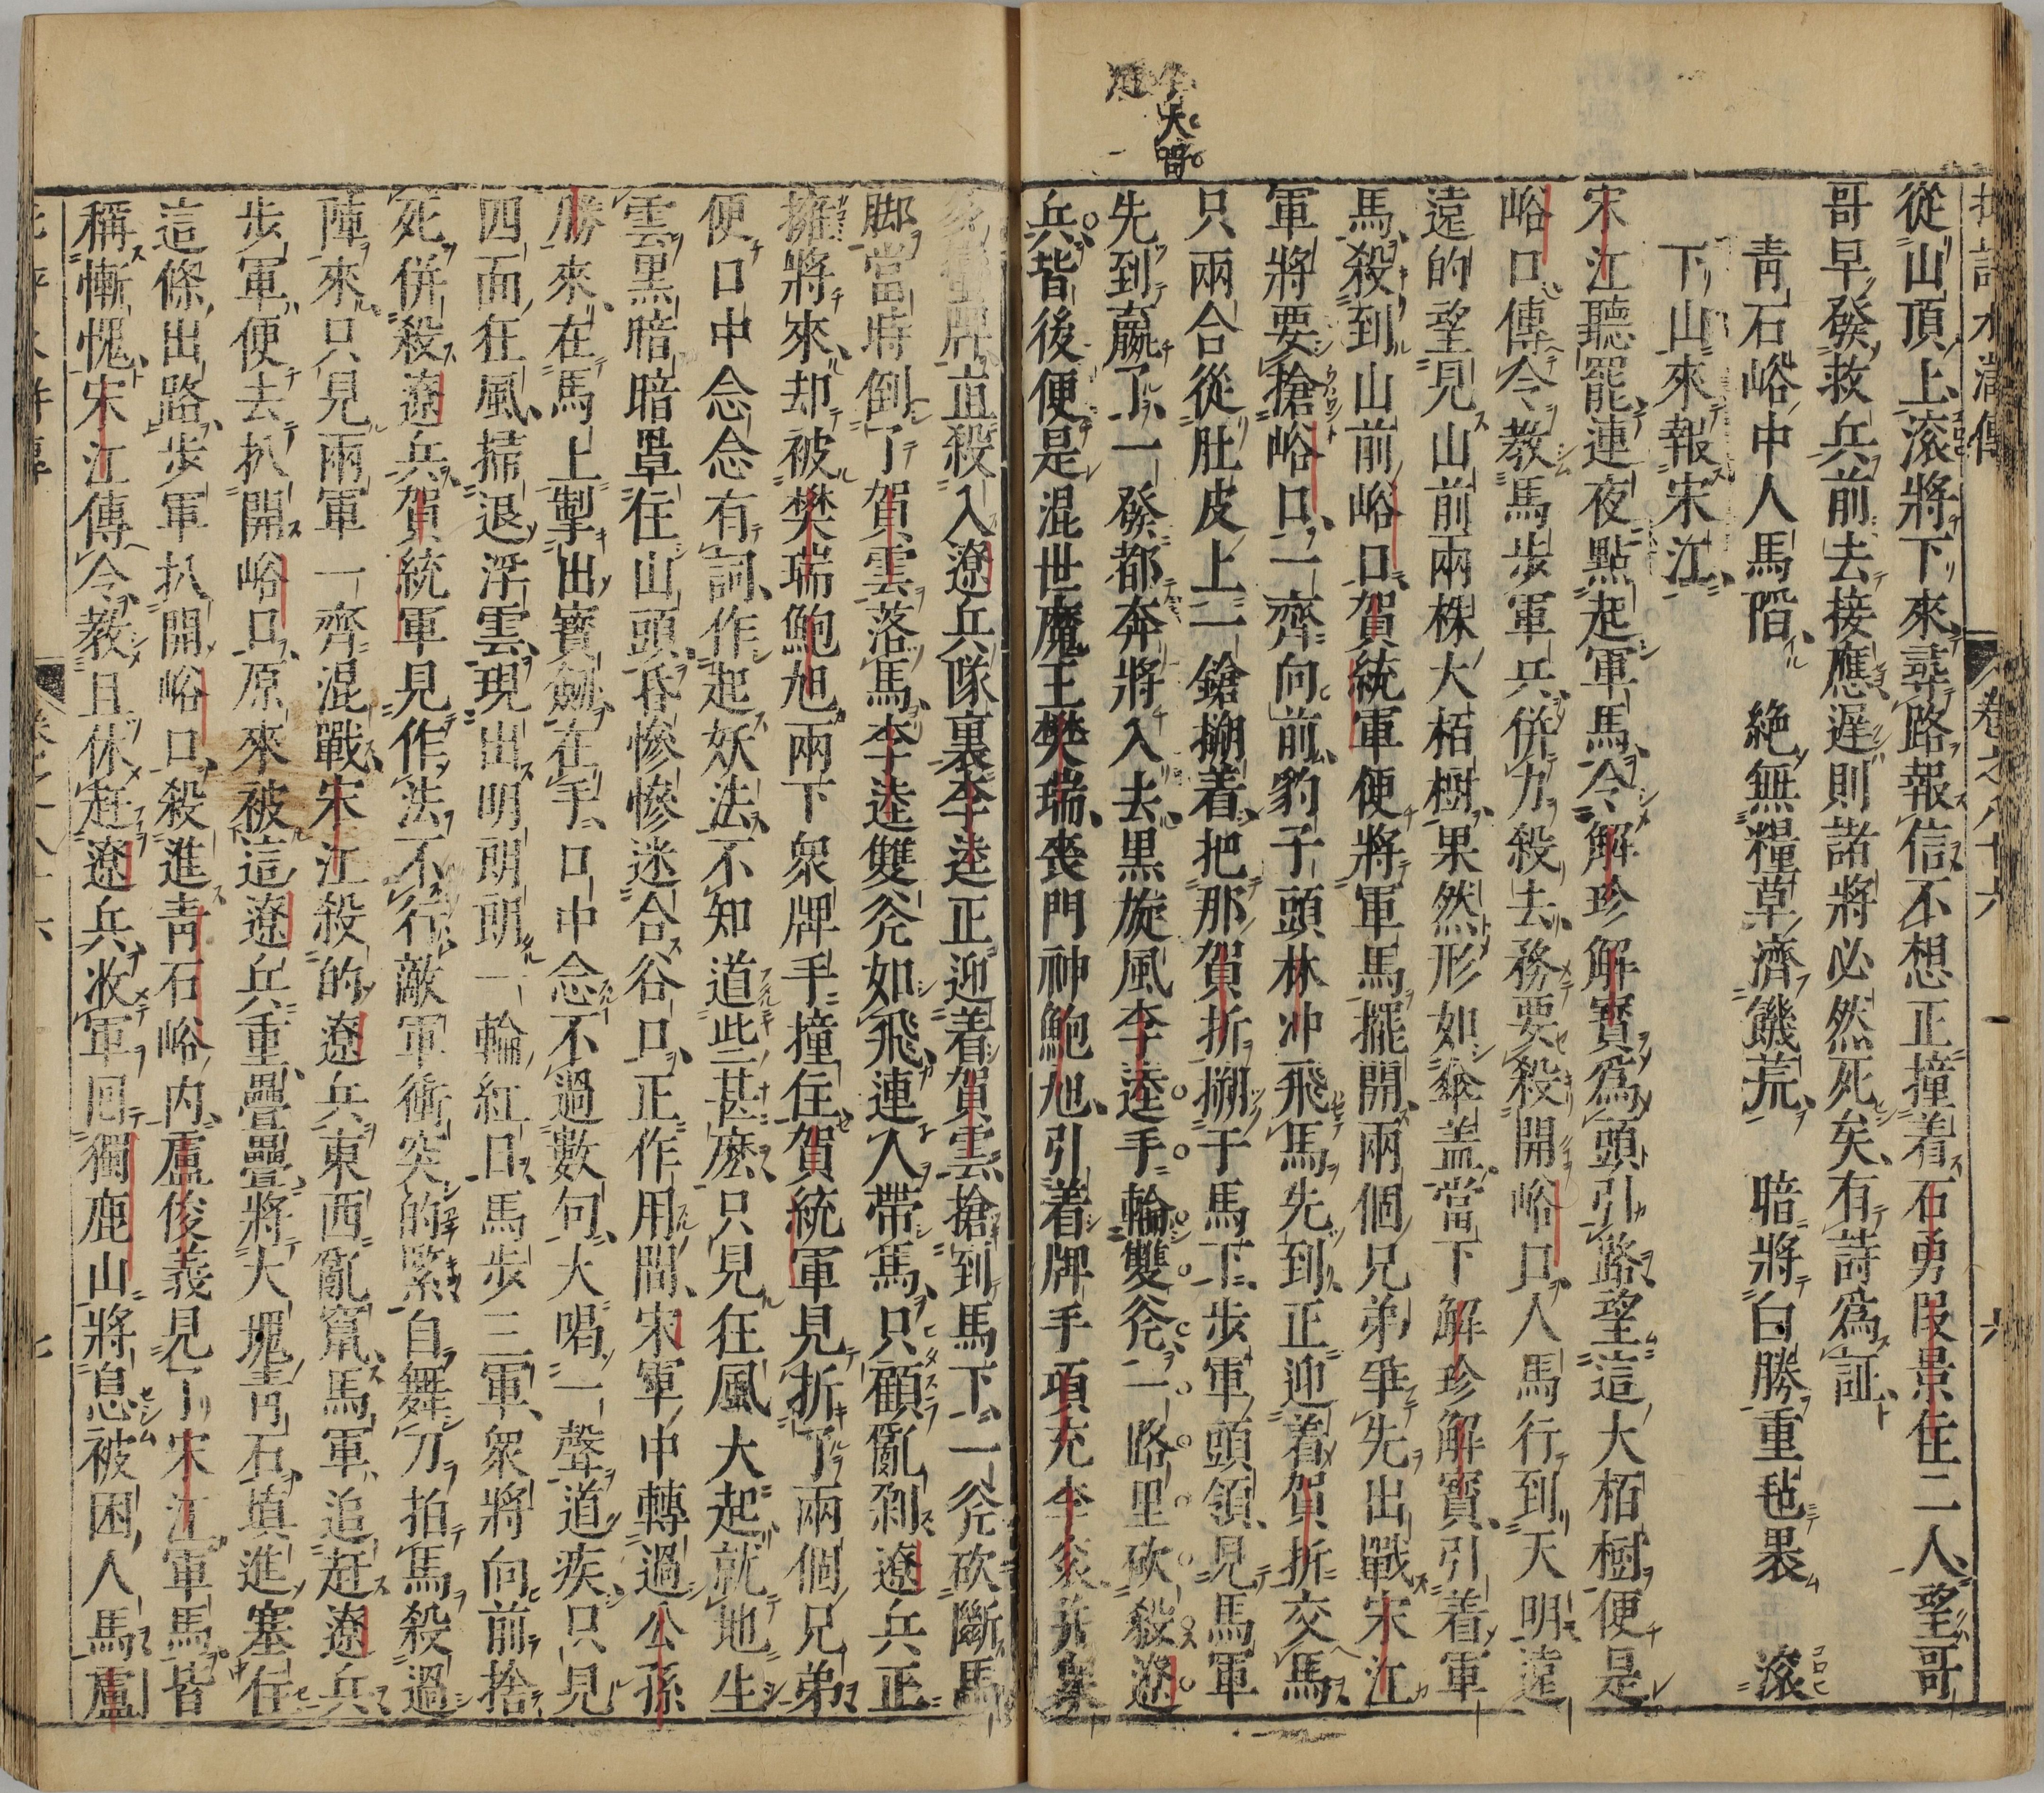 從山頂上滾將下來尋路報信不想正撞着石勇叚景住二人望哥
哥早發救兵前去接應遲則諸將必然死矣有詩爲証
青石峪中人馬陷　絶無糧草濟饑荒　暗將白勝重毡裹　滾
下山來報宋江
宋江聽罷連夜點起軍馬令解珍解寶爲頭引路望這大栢樹便是
峪口傳令教馬步軍兵併力殺去務要殺開峪口人馬行到天明遠
遠的望見山前兩株大栢樹果然形如傘盖當下解珍解寶引着軍
馬殺到山前峪口賀統軍便將軍馬擺開兩個兄弟爭先出戰宋江
軍將要搶峪口一齊向前豹子頭林冲飛馬先到正迎着賀折交馬
只兩合從肚皮上一鎗搠着把那賀折搠于馬下步軍頭領見馬軍
先到贏了一發都奔將入去黒旋風李逵手輪雙斧一路里砍殺遼
兵背後便是混世魔王樊瑞喪門神鮑旭引着牌手項充李袞并衆
蠻牌直殺入遼兵隊裏李逵正迎着賀雲搶到馬下一斧砍斷馬
脚當時倒了賀雲落馬李逵雙斧如飛連人帶馬只顧亂剁遼兵正
擁將來却被樊瑞鮑旭兩下衆牌手撞住賀統軍見折了兩個兄弟
便口中念念有詞作起妖法不知道些甚麽只見狂風大起就地生
雲黒暗暗罩住山頭昏慘慘迷合谷口正作用間宋軍中轉過公孫
勝來在馬上掣出寶劒在手口中念不過數句大喝一聲道疾只見
四面狂風掃退浮雲現出明朗朗一輪紅日馬步三軍衆將向前捨
死併殺遼兵賀統軍見作法不行敵軍衝突的緊自舞刀拍馬殺過
陣來只見兩軍一齊混戰宋江殺的遼兵東西亂竄馬軍追赶遼兵
步軍便去扒開峪口原來被這遼兵重重疊疊將大塊青石填進塞住
這條出路步軍扒開峪口殺進青石峪内盧俊義見了宋江軍馬皆
稱慚愧宋江傳令教且休赶遼兵收軍回獨鹿山將息被困人馬盧